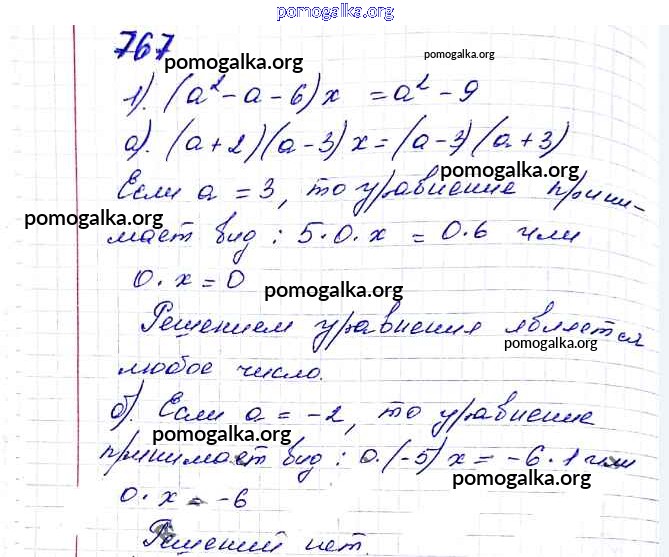 pomogalka.org
767
pomogalka.org
pomogalka.org
1). (a² - a - 6) x = a² - 9
а). (a + 2)(a - 3) x = (a - 3)(a + 3)
pomogalka.org
Если a = 3, то уравнение прини-
pomogalka.org
мает вид: 5·0·x = 0·6 или
0·x = 0
pomogalka.org
Решением уравнения является
pomogalka.org
любое число.
б). Если a = -2, то уравнение
pomogalka.org
принимает вид: 0·(-5) x = -6·1 или
pomogalka.org
0·x = -6
Решений нет.